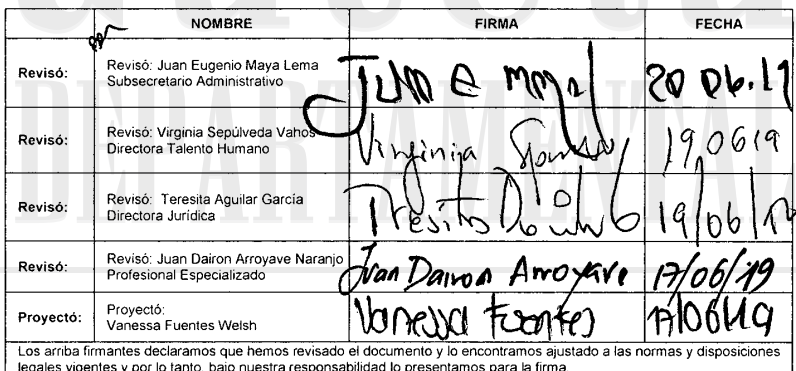 NOMBRE FIRMA FECHA
Revisó: Revisó: Juan Eugenio Maya Lema
Subsecretario Administrativo
Juan E Maya L 20 06.19
Revisó: Revisó: Virginia Sepúlveda Vahos
Directora Talento Humano
Virginia 19 06 19
Revisó: Revisó: Teresita Aguilar García
Directora Jurídica
19/06/19
Revisó: Revisó: Juan Dairon Arroyave Naranjo
Profesional Especializado
Juan Dairon Arroyave 17/06/19
Proyectó: Proyectó:
Vanessa Fuentes Welsh
Vanessa Fuentes 17/06/19
Los arriba firmantes declaramos que hemos revisado el documento y lo encontramos ajustado a las normas y disposiciones
legales vigentes y por lo tanto, bajo nuestra responsabilidad lo presentamos para la firma.
DEPARTAMENTAL